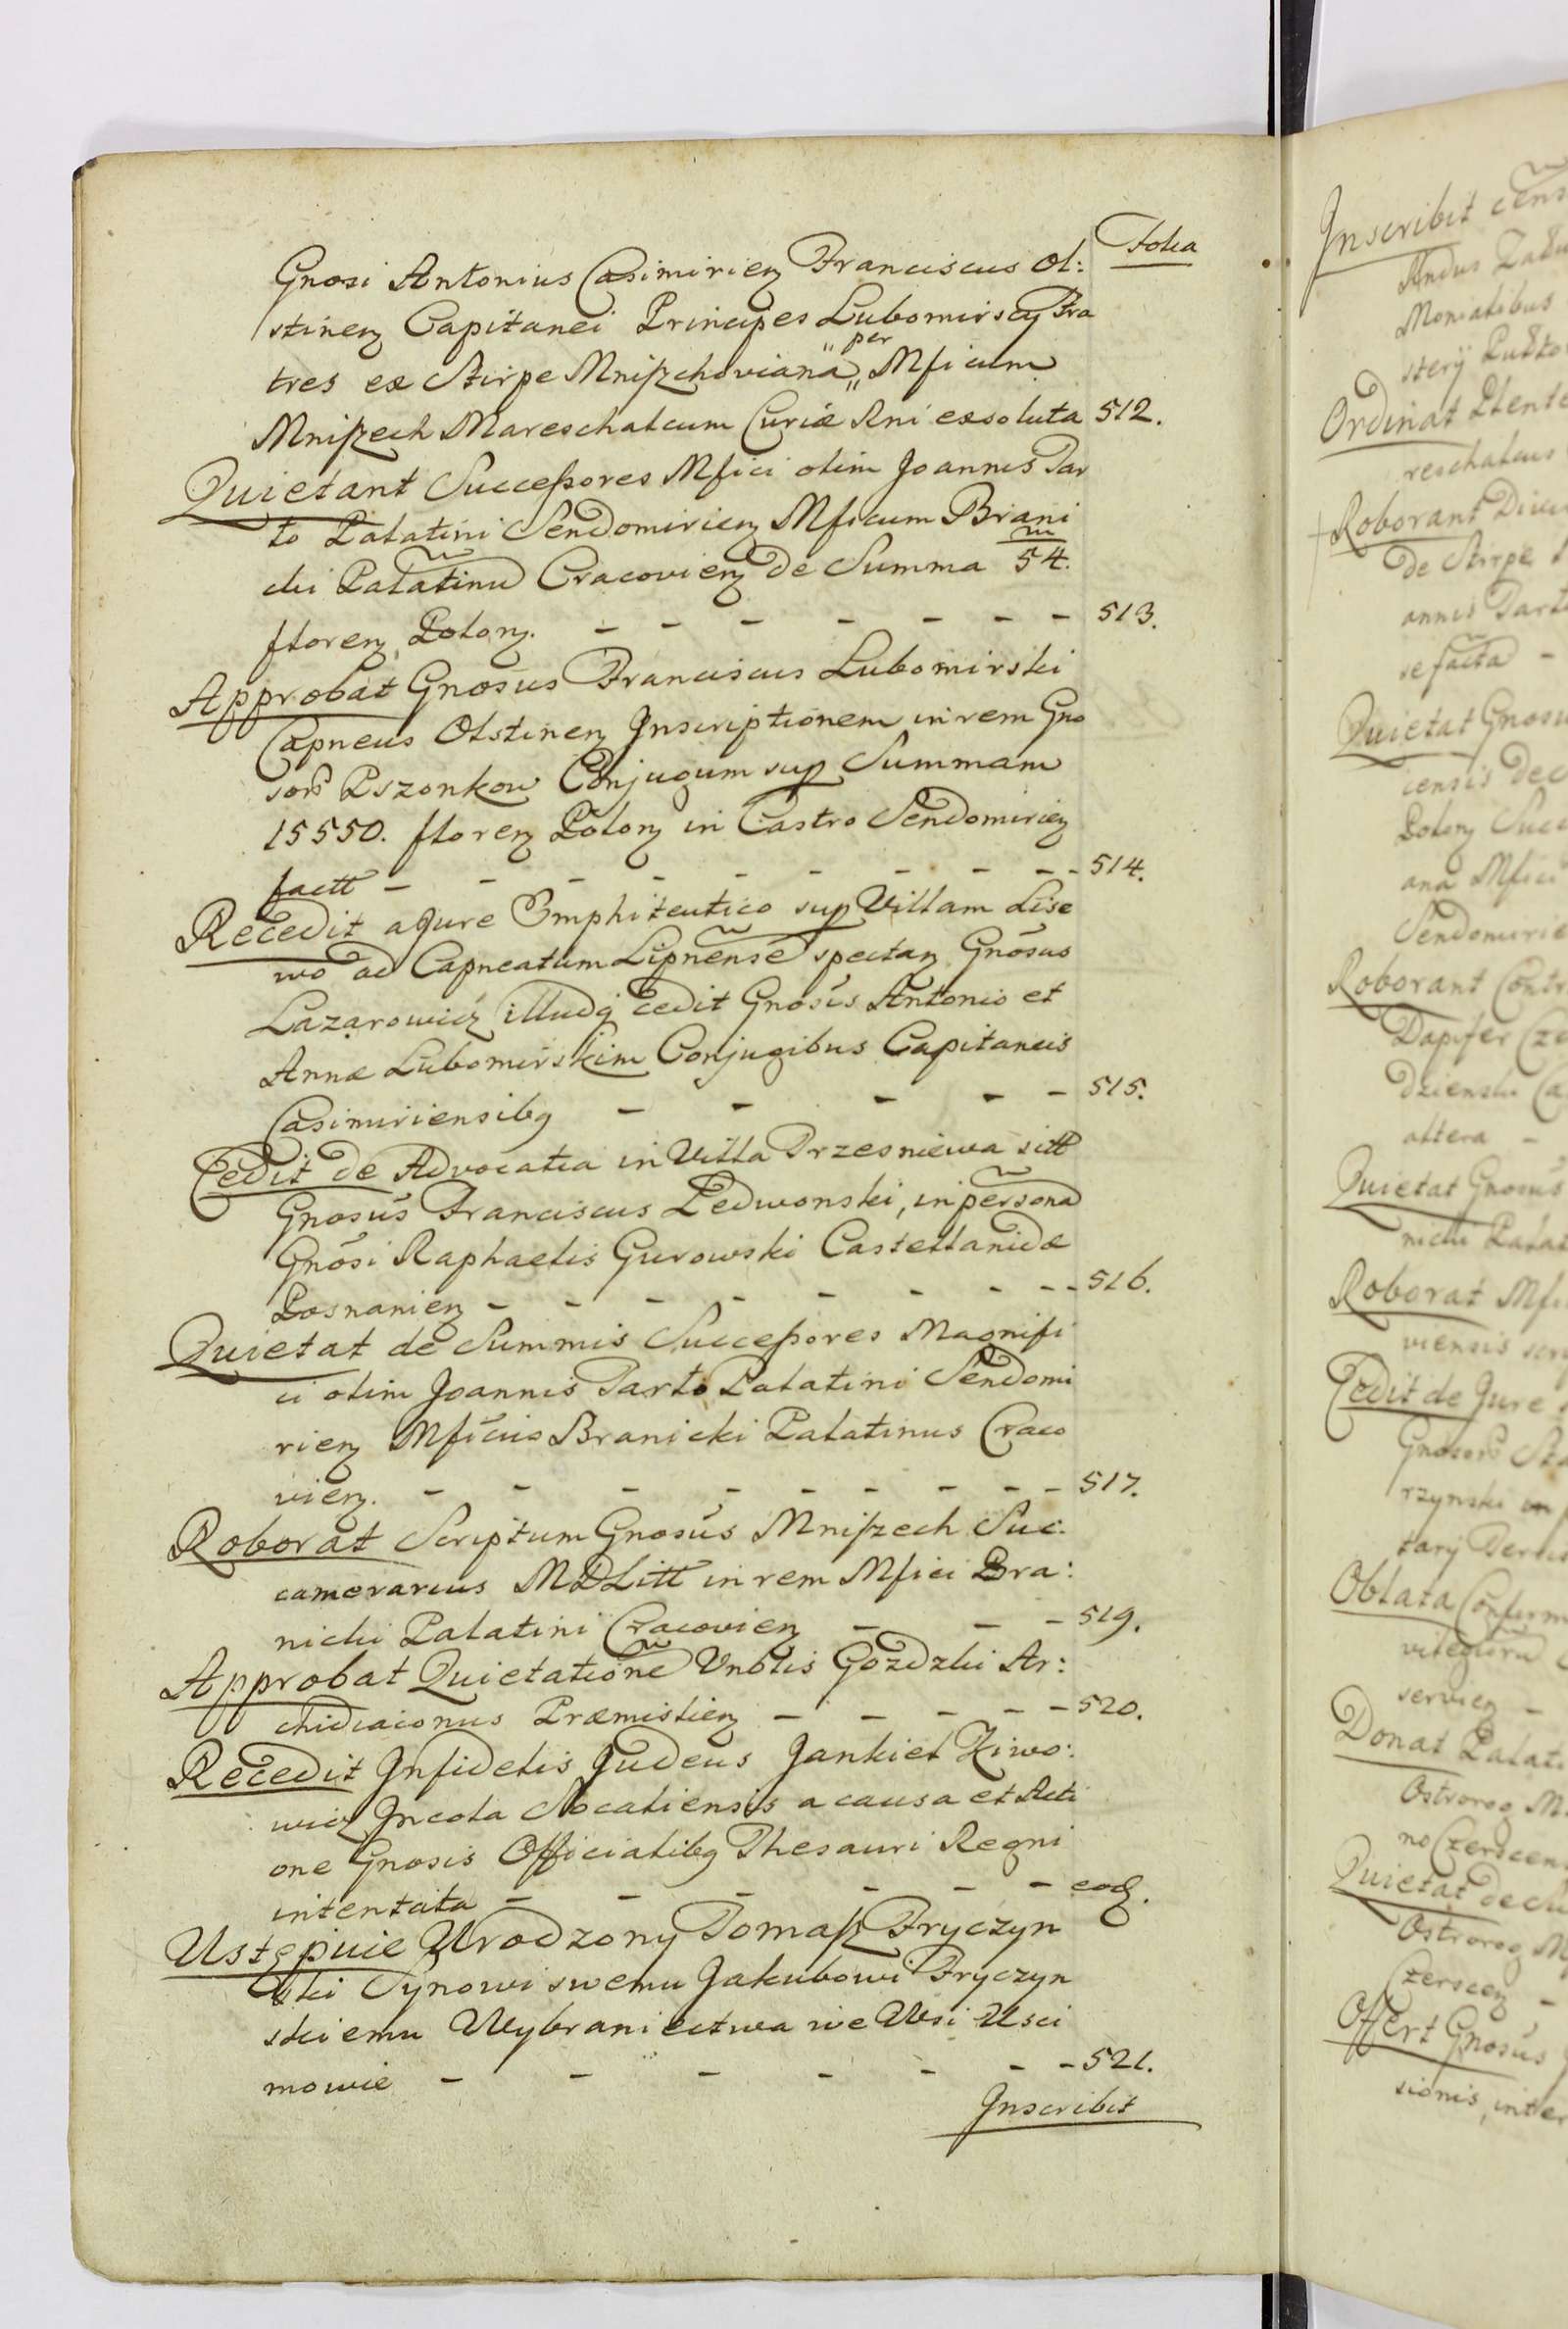 Folia
Gnosi Antonius Casimirien Franciscus Ol:
stinen Capitanei Principes Lubomirscy Fra
tres ex Stirpe Mniszchoviana „ per „ Mficum
Mniszech Mareschalcum Curiæ Rni exsoluta 512.
Quietant Successores Mfici olim Joannis Tar
ło Palatini Sendomirien Mficum Brani
cki Palatinũ Cracovien de Summa 54. m
floren Polon. - - - - - - - 513.
Approbat Gnosus Franciscus Lubomirski
Capneus Olstinen Inscriptionem in rem Gno
sorũ Pszonkow Conjugum sup Summam
15550. floren Polon in Castro Sendomirien
factt - - - - - - - - - 514.
Recedit a Jure Emphiteutico sup Villam Lise
wo ad Capneatum Lipnensẽ spectan Gnõsus
Lazarowicz illudq cedit Gnosis Antonio et
Annæ Lubomirskim Conjugibus Capitaneis
Casimiriensibq - - - - - 515.
Cedit de Advocatia in Villa Przesniewa sitt
Gnosus Franciscus Ledwonski, in personã
Gnõsi Raphaelis Gurowski Castellanidæ
Posnanien - - - - - - - - - 516.
Quietat de Summis Successores Magnifi
ci olim Joannis Tarło Palatini Sendomi
rien Mficus Branicki Palatinus Craco
vien. - - - - - - - - - 517.
Roborat Scriptum Gnosus Mniszech Suc:
camerarius MDLitt in rem Mfici Bra:
nicki Palatini Cracovien - - - 519.
Approbat Quietationẽ Vnblis Gozdzki Ar:
chidiaconus Præmislien - - - - - 520.
Recedit Infidelis Judeus Jankiel Ziwo:
wicz Incola Nocaliensis a causa et Acti
one Gnosis Officialibq Thesauri Regni
intentata - - - - - - eod.
Ustępuie Urodzony Tomasz Fryczyn
ski Synowi swemu Jakubowi Fryczyn
skiemu Wybraniectwa we Wsi Usci
mowie - - - - - - - 521.
Inscribit
Inscribit
Andus
Moniatibus
Ordinat
reschalcus
Roborant
de Stirpe
annis Tarł
se facta -
Quietat Gnosu
iensis de
Polon Succ
ana Mfici
Sendomirie
Roborant Contr
Dapifer
altera -
Quietat Gnosus
nicki Palat
Roborat Mfi
viensis
Cedit de Jure
Gnosorũ
rzynski
Oblata Confirm
servien -
Donat Palati
Ostrorog M
no Czerscen
Quietat de Su
Ostrorog M
Czerscen -
Offert Gnosus
sionis, inter